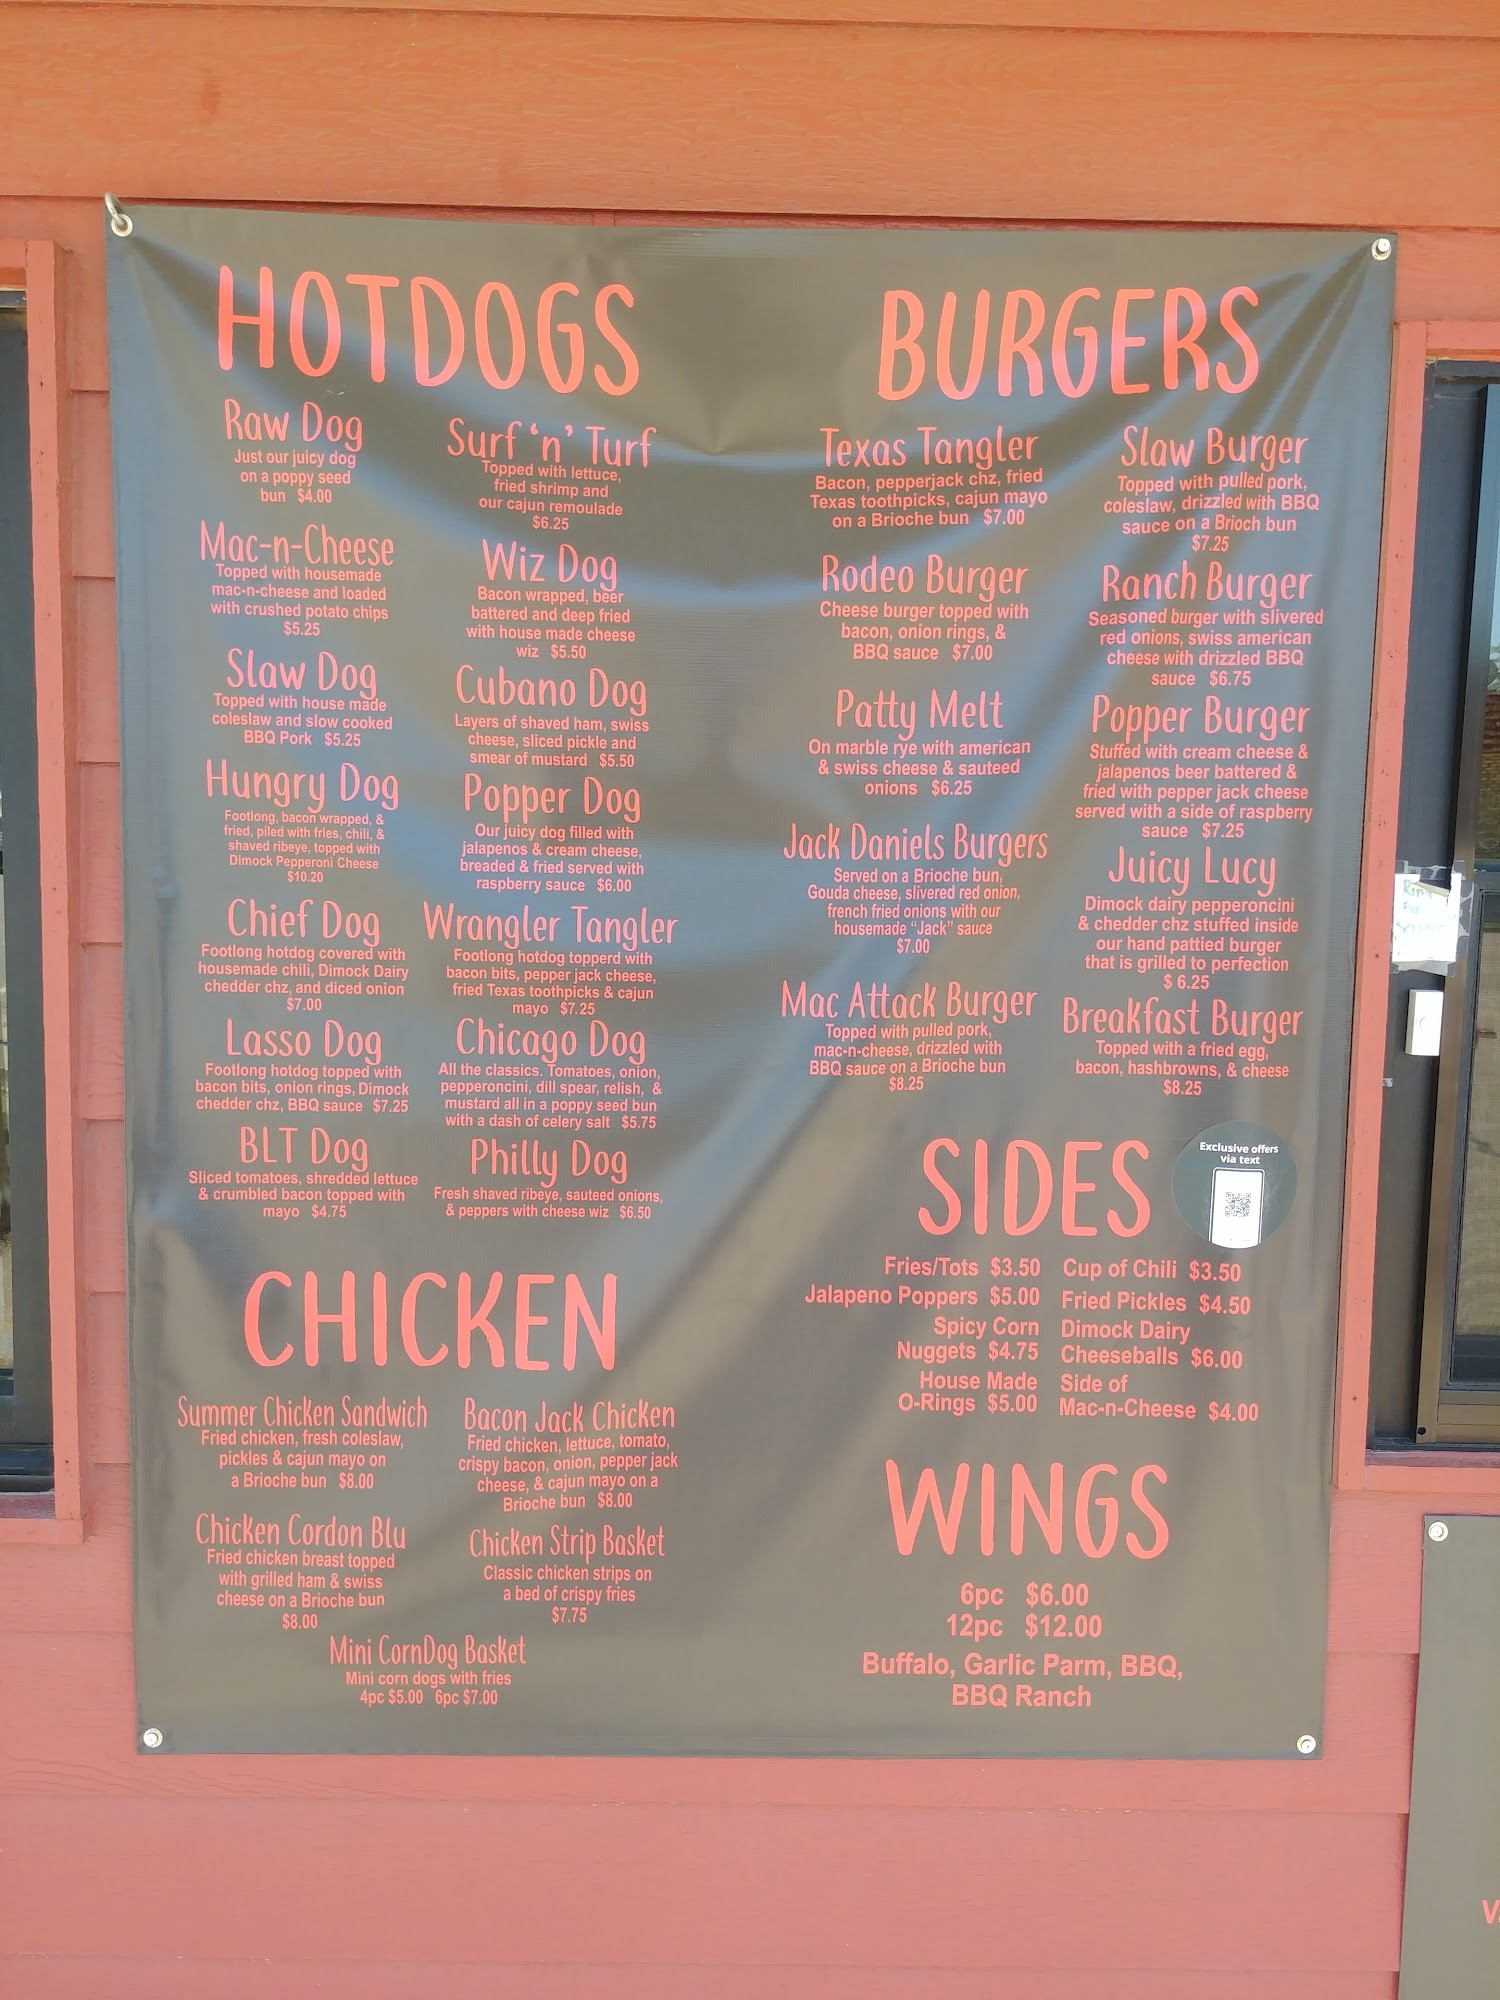 HOTDOGS
Raw Dog
Just our juicy dog
on a poppy seed
bun $4.00
Mac-n-Cheese
Topped with housemade
mac-n-cheese and loaded
with crushed potato chips
$5.25
Slaw Dog
Topped with house made
coleslaw and slow cooked
BBQ Pork $5.25
Hungry Dog
Footlong, bacon wrapped, &
fried, piled with fries, chili, &
shaved ribeye, topped with
Dimock Pepperoni Cheese
$10.20
Chief Dog
Footlong hotdog covered with
housemade chili, Dimock Dairy
chedder chz, and diced onion
$7.00
Lasso Dog
Footlong hotdog topped with
bacon bits, onion rings, Dimock
chedder chz, BBQ sauce $7.25
BLT Dog
Sliced tomatoes, shredded lettuce
& crumbled bacon topped with
mayo $4.75
Surf 'n' Turf
Topped with lettuce,
fried shrimp and
our cajun remoulade
$6.25
Wiz Dog
Bacon wrapped, beer
battered and deep fried
with house made cheese
wiz $5.50
Cubano Dog
Layers of shaved ham, swiss
cheese, sliced pickle and
smear of mustard $5.50
Popper Dog
Our juicy dog filled with
jalapenos & cream cheese,
breaded & fried served with
raspberry sauce $6.00
Wrangler Tangler
Footlong hotdog topperd with
bacon bits, pepper jack cheese,
fried Texas toothpicks & cajun
mayo $7.25
Chicago Dog
All the classics. Tomatoes, onion,
pepperoncini, dill spear, relish, &
mustard all in a poppy seed bun
with a dash of celery salt $5.75
Philly Dog
Fresh shaved ribeye, sauteed onions,
& peppers with cheese wiz $6.50
CHICKEN
Summer Chicken Sandwich
Fried chicken, fresh coleslaw,
pickles & cajun mayo on
a Brioche bun $8.00
Chicken Cordon Blu
Fried chicken breast topped
with grilled ham & swiss
cheese on a Brioche bun
$8.00
Bacon Jack Chicken
Fried chicken, lettuce, tomato,
crispy bacon, onion, pepper jack
cheese, & cajun mayo on a
Brioche bun $8.00
Chicken Strip Basket
Classic chicken strips on
a bed of crispy fries
$7.75
Mini CornDog Basket
Mini corn dogs with fries
4pc $5.00 6pc $7.00
BURGERS
Texas Tangler
Bacon, pepperjack chz, fried
Texas toothpicks, cajun mayo
on a Brioche bun $7.00
Rodeo Burger
Cheese burger topped with
bacon, onion rings, &
BBQ sauce $7.00
Patty Melt
On marble rye with american
& swiss cheese & sauteed
onions $6.25
Jack Daniels Burgers
Served on a Brioche bun,
Gouda cheese, slivered red onion,
french fried onions with our
housemade "Jack" sauce
$7.00
Mac Attack Burger
Topped with pulled pork,
mac-n-cheese, drizzled with
BBQ sauce on a Brioche bun
$8.25
Slaw Burger
Topped with pulled pork,
coleslaw, drizzled with BBQ
sauce on a Brioch bun
$7.25
Ranch Burger
Seasoned burger with slivered
red onions, swiss american
cheese with drizzled BBQ
sauce $6.75
Popper Burger
Stuffed with cream cheese &
jalapenos beer battered &
fried with pepper jack cheese
served with a side of raspberry
sauce $7.25
Juicy Lucy
Dimock dairy pepperoncini
& chedder chz stuffed inside
our hand pattied burger
that is grilled to perfection
$ 6.25
Breakfast Burger
Topped with a fried egg,
bacon, hashbrowns, & cheese
$8.25
SIDES
Exclusive offers
via text
Fries/Tots $3.50
Jalapeno Poppers $5.00
Spicy Corn
Nuggets $4.75
House Made
O-Rings $5.00
Cup of Chili $3.50
Fried Pickles $4.50
Dimock Dairy
Cheeseballs $6.00
Side of
Mac-n-Cheese $4.00
WINGS
6pc $6.00
12pc $12.00
Buffalo, Garlic Parm, BBQ,
BBQ Ranch